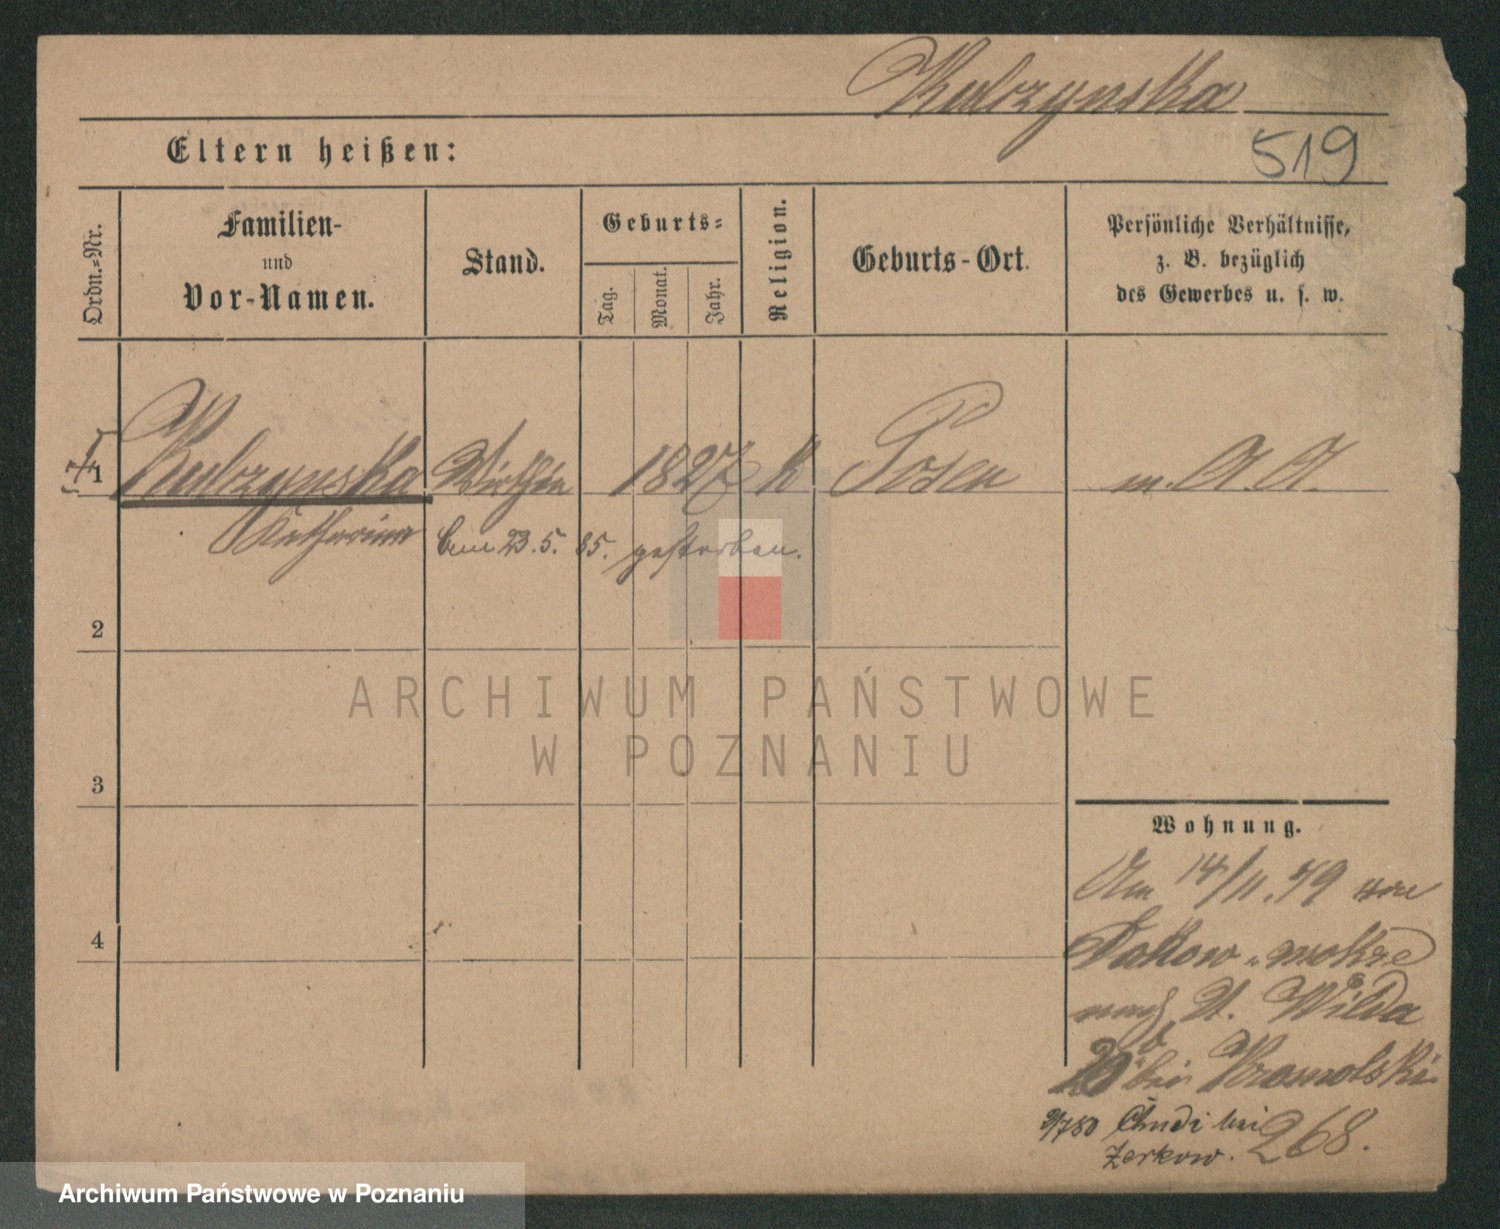 Kulczynska
519
Eltern heißen:
Ordn.-Nr.
Familien-
und
Vor-Namen.
Stand.
Geburts-
Tag.
Monat.
Jahr.
Religion.
Geburts-Ort.
Persönliche Verhältnisse,
z. B. bezüglich
des Gewerbes u. s. w.
1 Kulczynska Wirthin 1827 k Posen m. A. A.
Katharina 23. 5. 85. gestorben.
2
3
4
ARCHIWUM PAŃSTWOWE
W POZNANIU
Wohnung.
Am 14/11. 79 von
mokre
nach St. Wilda
20 bei
2/7 80 bei 268.
Zerkow.
Archiwum Państwowe w Poznaniu